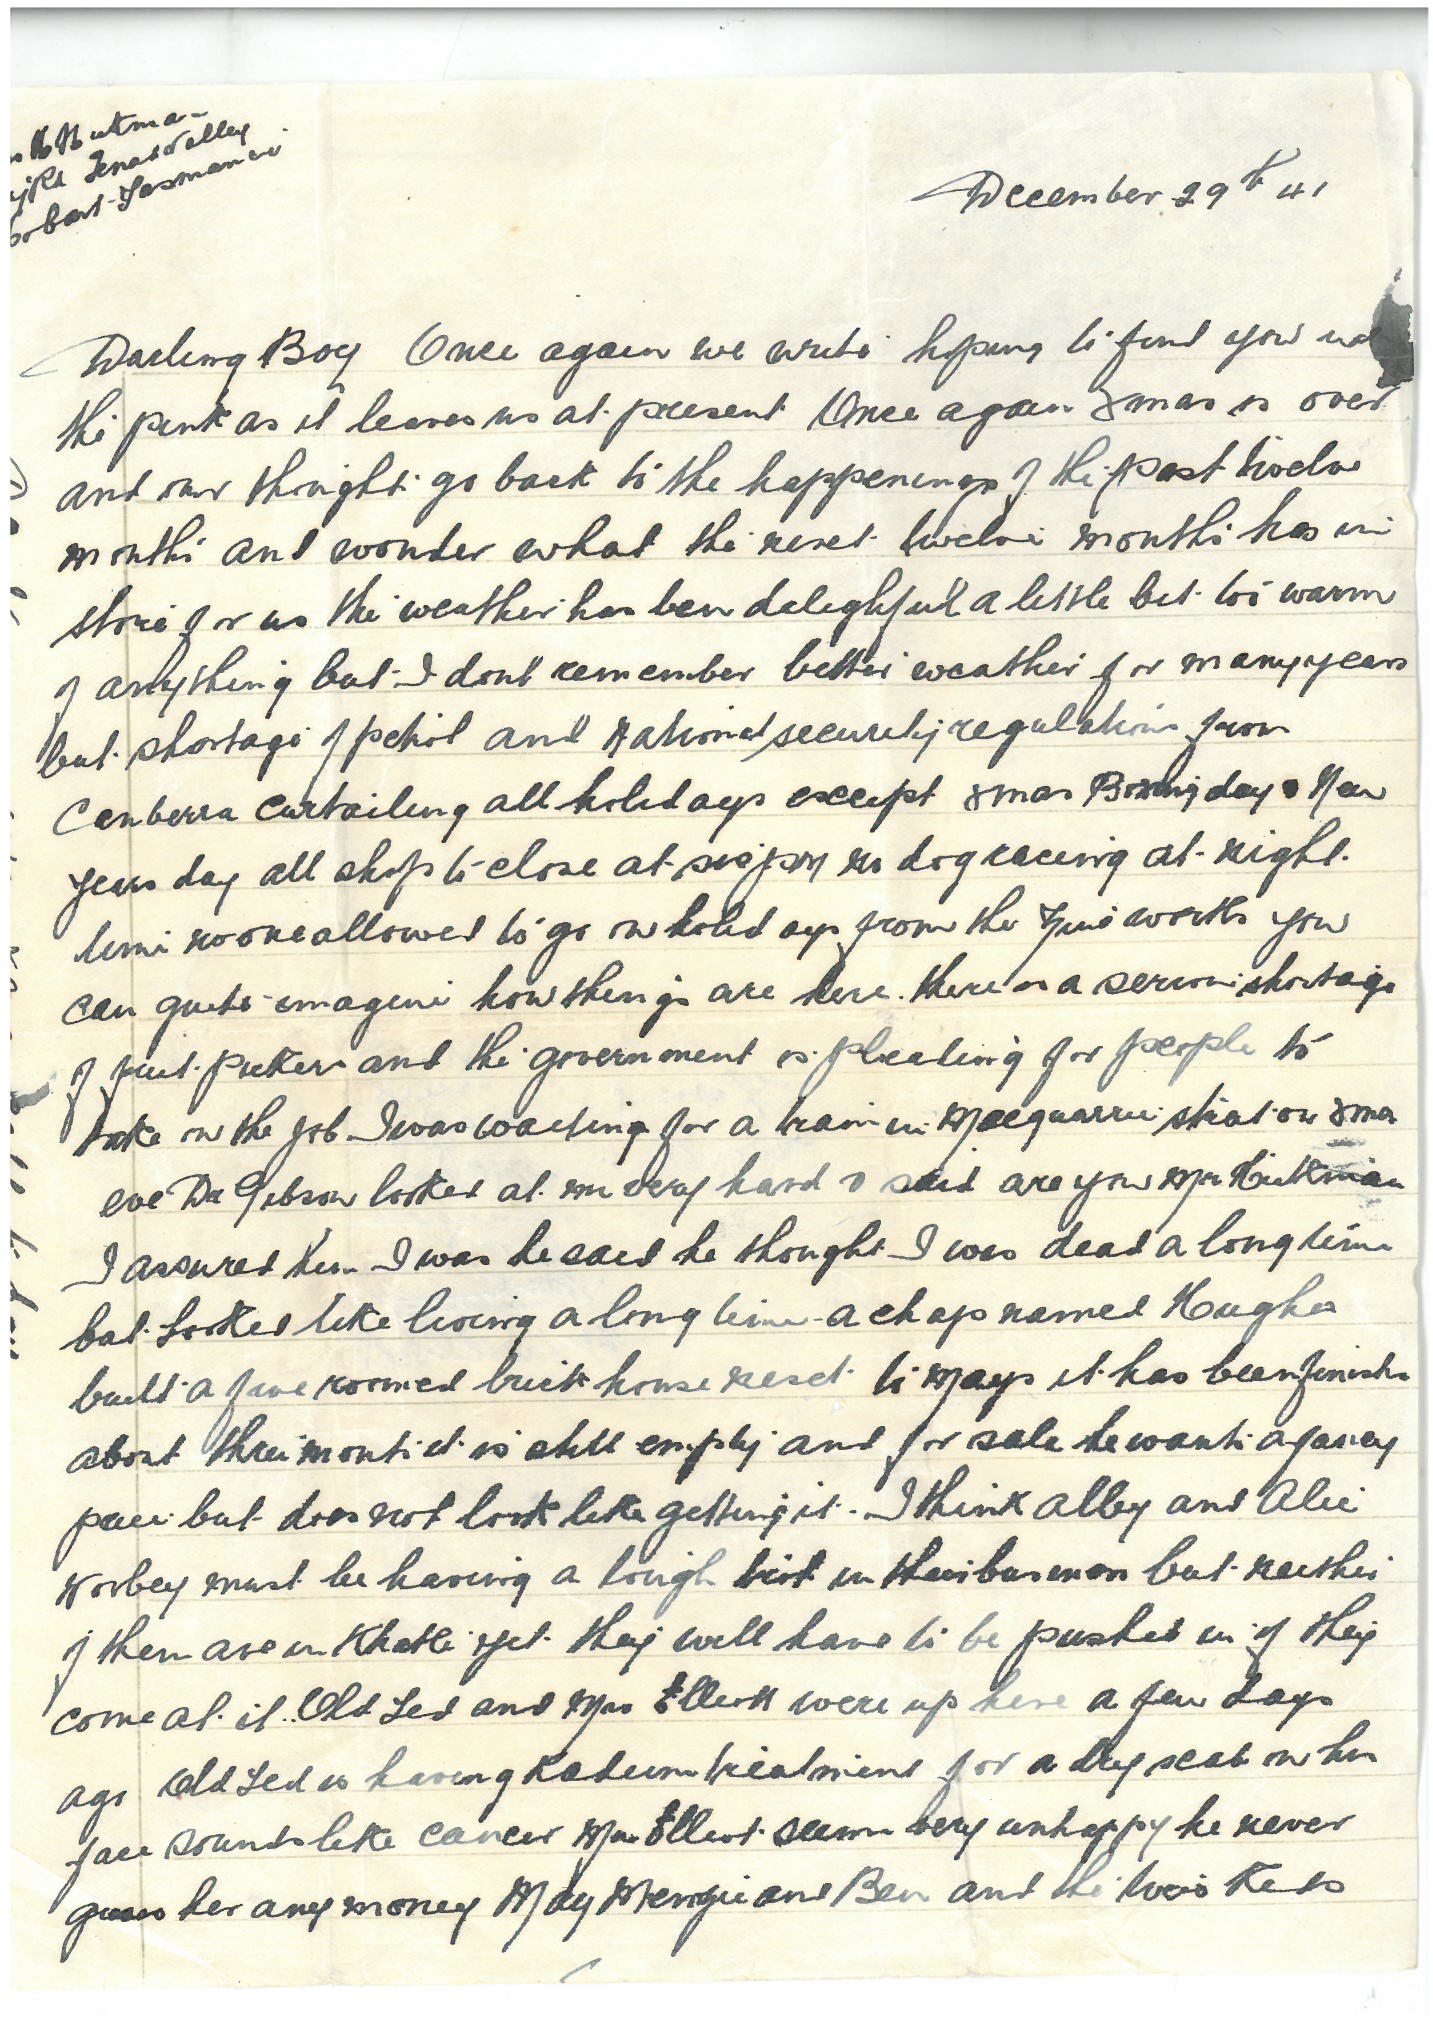 Lenah Valley
Hobart Tasmania
December 29th 41
Darling Boy Once again we write hoping to find you
the pink as it leaves us at present Once again Xmas is over
and our thought go back to the happenings of the past twelve
months and wonder what the next twelve months has in
store for us the weather has ben delighfull a little bit to warm
if anything but I dont remember better weather for many years
but shortage of petrol and National security regulations from
Canberra curtailing all holidays except Xmas Boxing day & New
years day all shops to close at six pm no dog racing at night
time no one allowed to go on holidays from the Zinc works you
can quite imagine how things are here. there is a serious shortage
of fruit pickers and the government is pleading for people to
take on the job I was waiting for a tram in Macquarrie street on Xmas
eve Dr Gibson looked at me very hard & said are you Mr Hickman
I assured him I was he said he thought I was dead a long time
but looked like living a long time a chap named Hughes
built a five roomed brick house next to Mays it has been finish
about three month it is still empty and for sale he wants a fancy
price but does not look like getting it. I think Alley and Alic
Norbey must be having a tough trot in their business but neither
of them are in Khaki yet they will have to be pushed in if they
come at it. Old Ted and Mrs Elliott were up here a few days
ago Old Ted is having Radium treatment for a dry scab on his
face sounds like cancer Mrs Elliot seems very unhappy he never
gives her any money May Mengie and Ben and the two Kids